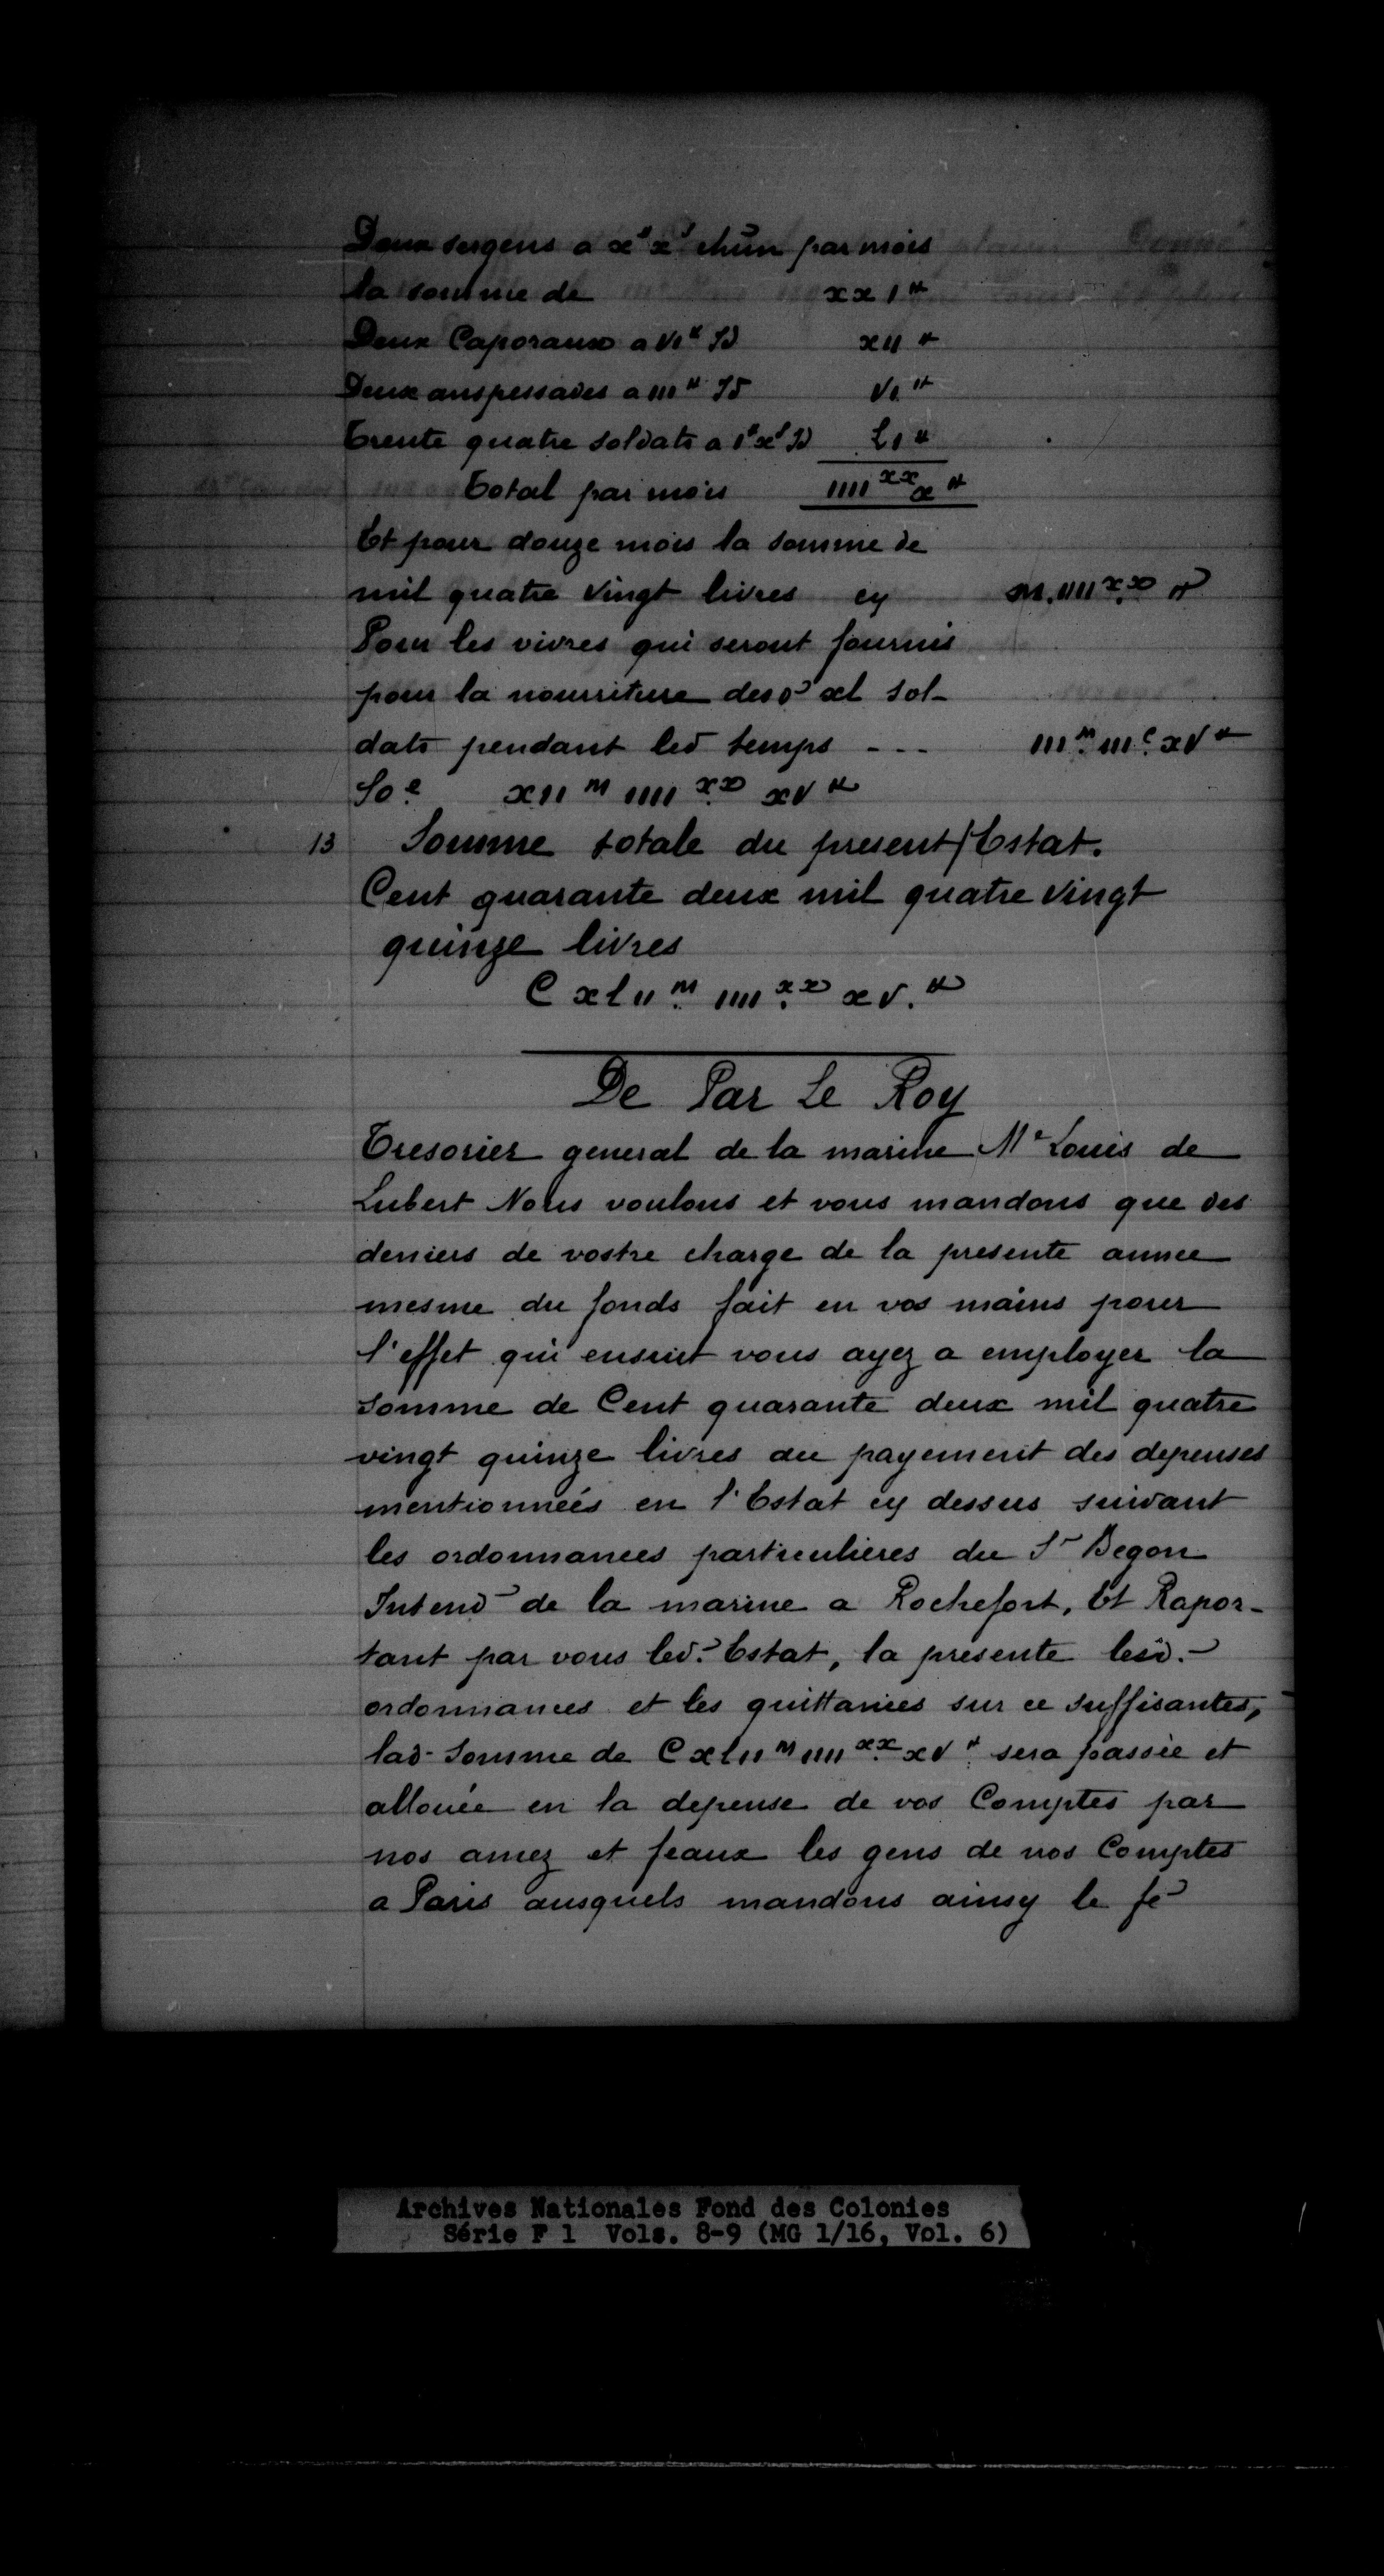 Deux sergens a x# x s chūn par mois
la somme de xx I #
Deux Caporaux a VI # Id xII #
Deux anspessades a III # Id VI #
Trente quatre soldats a I # x s Id LI #
Total par mois IIII xx x #
Et pour douze mois la somme de
mil quatre vingt livres cy M. IIII xx #
Pour les vivres qui seront fournis
pour la nourriture desd xl sol-
dats pendant led temps - - - III M III C xV #
So e xII M IIII xx xV #
13 Somme totale du present Estat.
Cent quarante deux mil quatre vingt
quinze livres
C xl II M IIII xx xV. #
De Par Le Roy
Tresorier general de la marine Me Louis de
Lubert Nous voulons et vous mandons que des
deniers de vostre charge de la presente annee
mesme du fonds fait en vos mains pour
l'effet qui ensuit vous ayez a employer la
somme de Cent quarante deux mil quatre
vingt quinze livres au payement des depenses
mentionneés en l'Estat cy dessus suivant
les ordonnances particulieres du Sr Begon
Intend de la marine a Rochefort, Et Rapor-
tant par vous led. Estat, la presente lesd.
ordonnances et les quittances sur ce suffisantes,
lad. somme de C xl II M IIII xx xV # sera passée et
allouée en la depense de vos Comptes par
nos amez et feaux les gens de nos Comptes
a Paris ausquels mandons ainsy le fe
Archives Nationales Fond des Colonies
Série F 1 Vols. 8-9 (MG 1/16, Vol. 6)